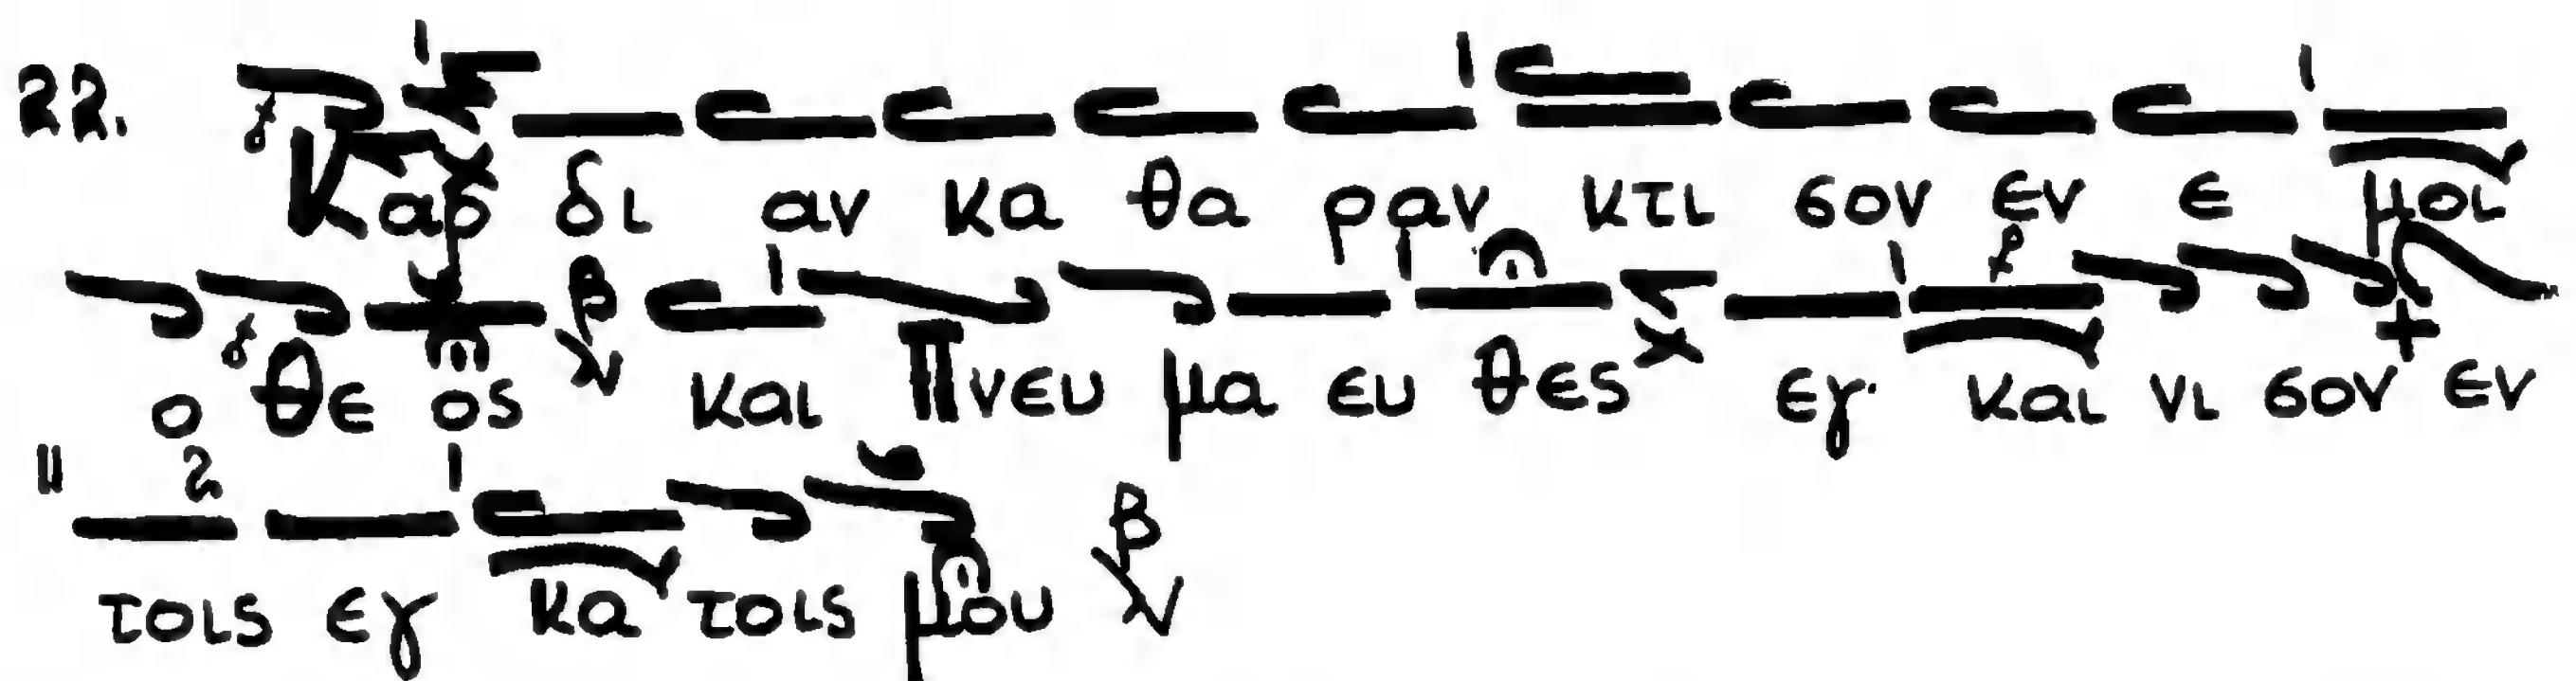 22. Καρ δι αν κα θα ραν κτι σον εν ε μοι
ο Θε ος β καὶ Πνευ μα ευ θες εγ και νι σον εν
τοις εγ κα τοις μου β